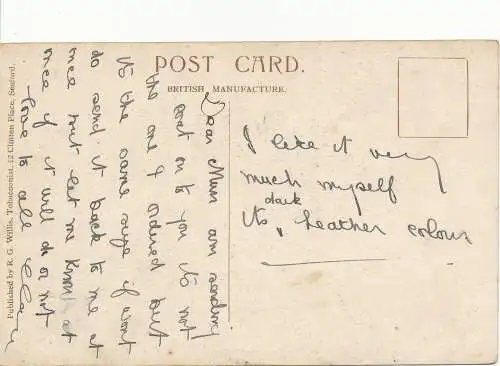 POST CARD.
BRITISH MANUFACTURE.
Published by R. G. Willis, Tobacconist, 12 Clinton Place, Seaford.
Dear Mum am sending
coat on to you its not
the one I ordered but
its the same size if wont
do send it back to me at
once but let me know at
once if it will do or not
love to all
I like it very
much myself
dark
Its, heather colour